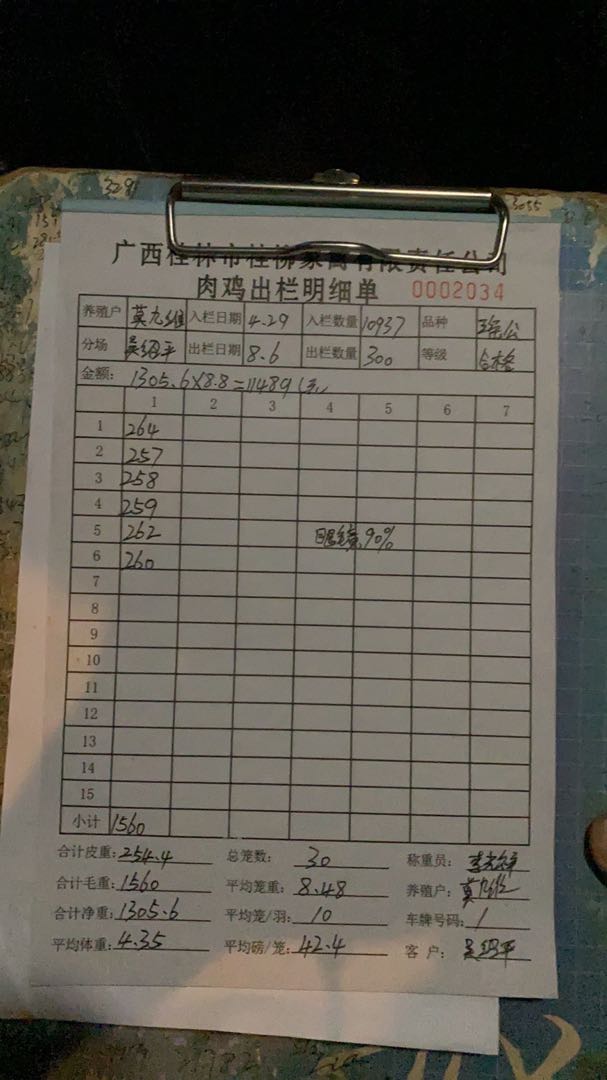 广西桂林市桂柳家禽有限责任公司
肉鸡出栏明细单 0002034
养殖户 莫九维 入栏日期 4.29 入栏数量 10937 品种
分场 吴绍平 出栏日期 8.6 出栏数量 300 等级 合格
金额: 1305.6×8.8=11489
1 2 3 4 5 6 7
1 264
2 257
3 258
4 259
5 262 90%
6 260
7
8
9
10
11
12
13
14
15
小计 1560
合计皮重: 254.4 总笼数: 30 称重员:
合计毛重: 1560 平均笼重: 8.48 养殖户:
合计净重: 1305.6 平均笼/羽: 10 车牌号码: 1
平均体重: 4.35 平均磅/笼: 42.4 客 户: 吴绍平